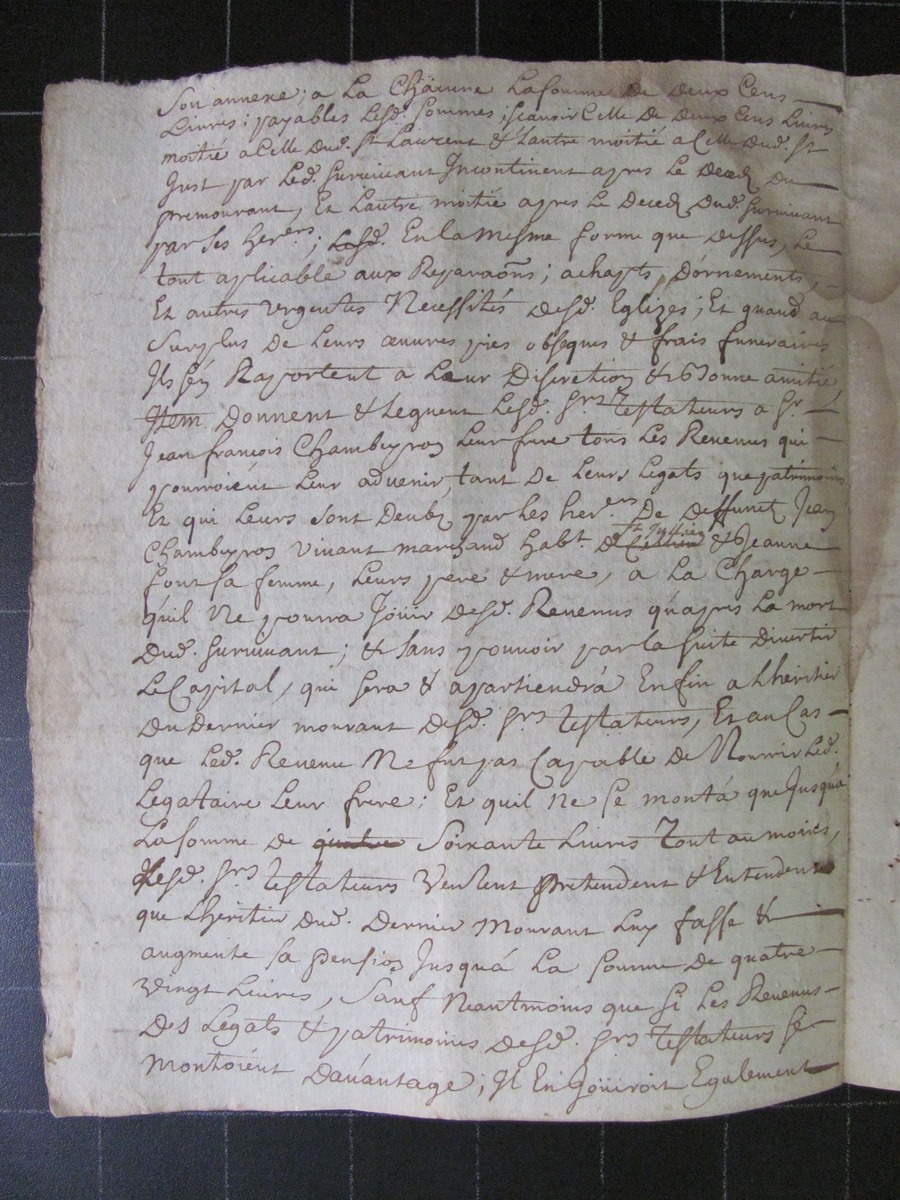 Son annexe ; a La Chäunne Lasomme de deux Cens
Livres ; payables Lesd. sommes ; scavoir Celle de deux Cens Livres
moitié a Celle dud. St Laurent & Lautre moitié a Celle dud. St
Just par Led. survivant Incontinent apres Le deced du
premourant, Et Lautre moitié apres Le deced dud. survivant
par ses herers ; Lesd. En la mesme forme que dessus, Le
tout aplicable aux Reparaõns ; achapts, dornements,
Et autres urgentes Necessités desd. Eglizes ; Et quand au
Surplus de Leurs œuvres pies obseques & frais funeraires
Ils sén Raportent a Leur discretion & bonne amitié,
Item donnent & Leguent Lesd. srs testateurs a sr
Jean francois Chambeyron Leur frere tous Les Revenus qui
pourroient Leur advenir, tant de Leurs Legats que patrimoine
Et qui Leurs sont deubz par Les herers de deffunct Jean
Chambeyron vivant marchand habt. d & Jeanne
font sa femme, Leurs pere & mere, a La Charge
quil Ne pourra Joüir desd. Revenus quapres La mort
dud. survivant ; & sans pouvoir par la suite divertir
Le Capital, qui sera & apartiendrá Enfin a Lheritier
du dernier mourant desd. srs testateurs, Et au Cas
que Led. Revenu Ne fut pas Capable de Nourrir Led.
Legataire Leur frere ; Et quil Ne se montá que Jusquá
La somme de quatre Soixante Livres tout au moins,
Lesd. srs testateurs Veulent pretendent & Entendent
que Lheritier dud. dernier mourant Luy fasse &
augmente sa pension Jusquá La somme de quatre
vingt Livres, Sauf Neantmoins que si Les Revenus
des Legats & patrimoines desd. srs testateurs se
montoient davantage ; Il En Joüiroit Egalement